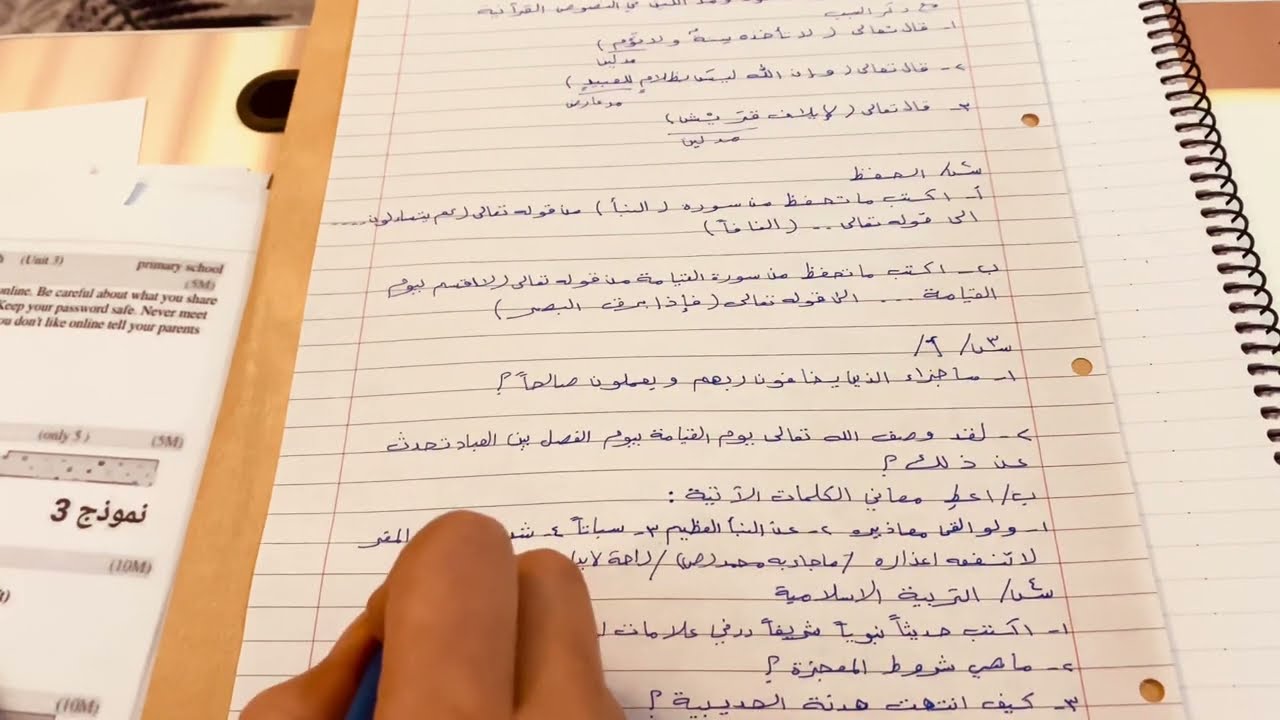 مع ذكر السبب
١- قال تعالى ( لا تأخذه سِنةٌ ولا نوم )
مد لين
٢- قال تعالى ( وان الله ليس بظلامٍ للعبيد )
مد عارض
٣- قال تعالى ( لإيلاف قريش )
مد لين
س٢/ الحفظ
أ- اكتب ما تحفظ من سوره ( النبأ ) من قوله تعالى ( عم يتساءلون ....
الى قوله تعالى .. ( الفافاً )
ب- اكتب ما تحفظ من سورة القيامة من قوله تعالى ( لا اقسم بيوم
القيامة .... الى قوله تعالى ( فإذا برق البصر )
س٣/ ٩/
١- ما جزاء الذين يخافون ربهم ويعملون صالحاً ؟
٢- لقد وصف الله تعالى يوم القيامة بيوم الفصل بين العباد تحدث
عن ذلك ؟
ب/ اعطِ معاني الكلمات الآتية :
١- ولو القى معاذيره ٢- عن النبأ العظيم ٣- سباتاً ٤- المقر
لا تنفعه اعذاره / ما جاء به محمد (ص) / راحة
س٤/ التربية الاسلامية
١- اكتب حديثاً نبوياً شريفاً علامات
٢- ما هي شروط المعجزة ؟
٣- كيف انتهت هدنة الحديبية ؟
(Unit 3) primary school
(5M)
nline. Be careful about what you share
Keep your password safe. Never meet
ou don't like online tell your parents
(only 5) (5M)
نموذج 3
(10M)
(10M)